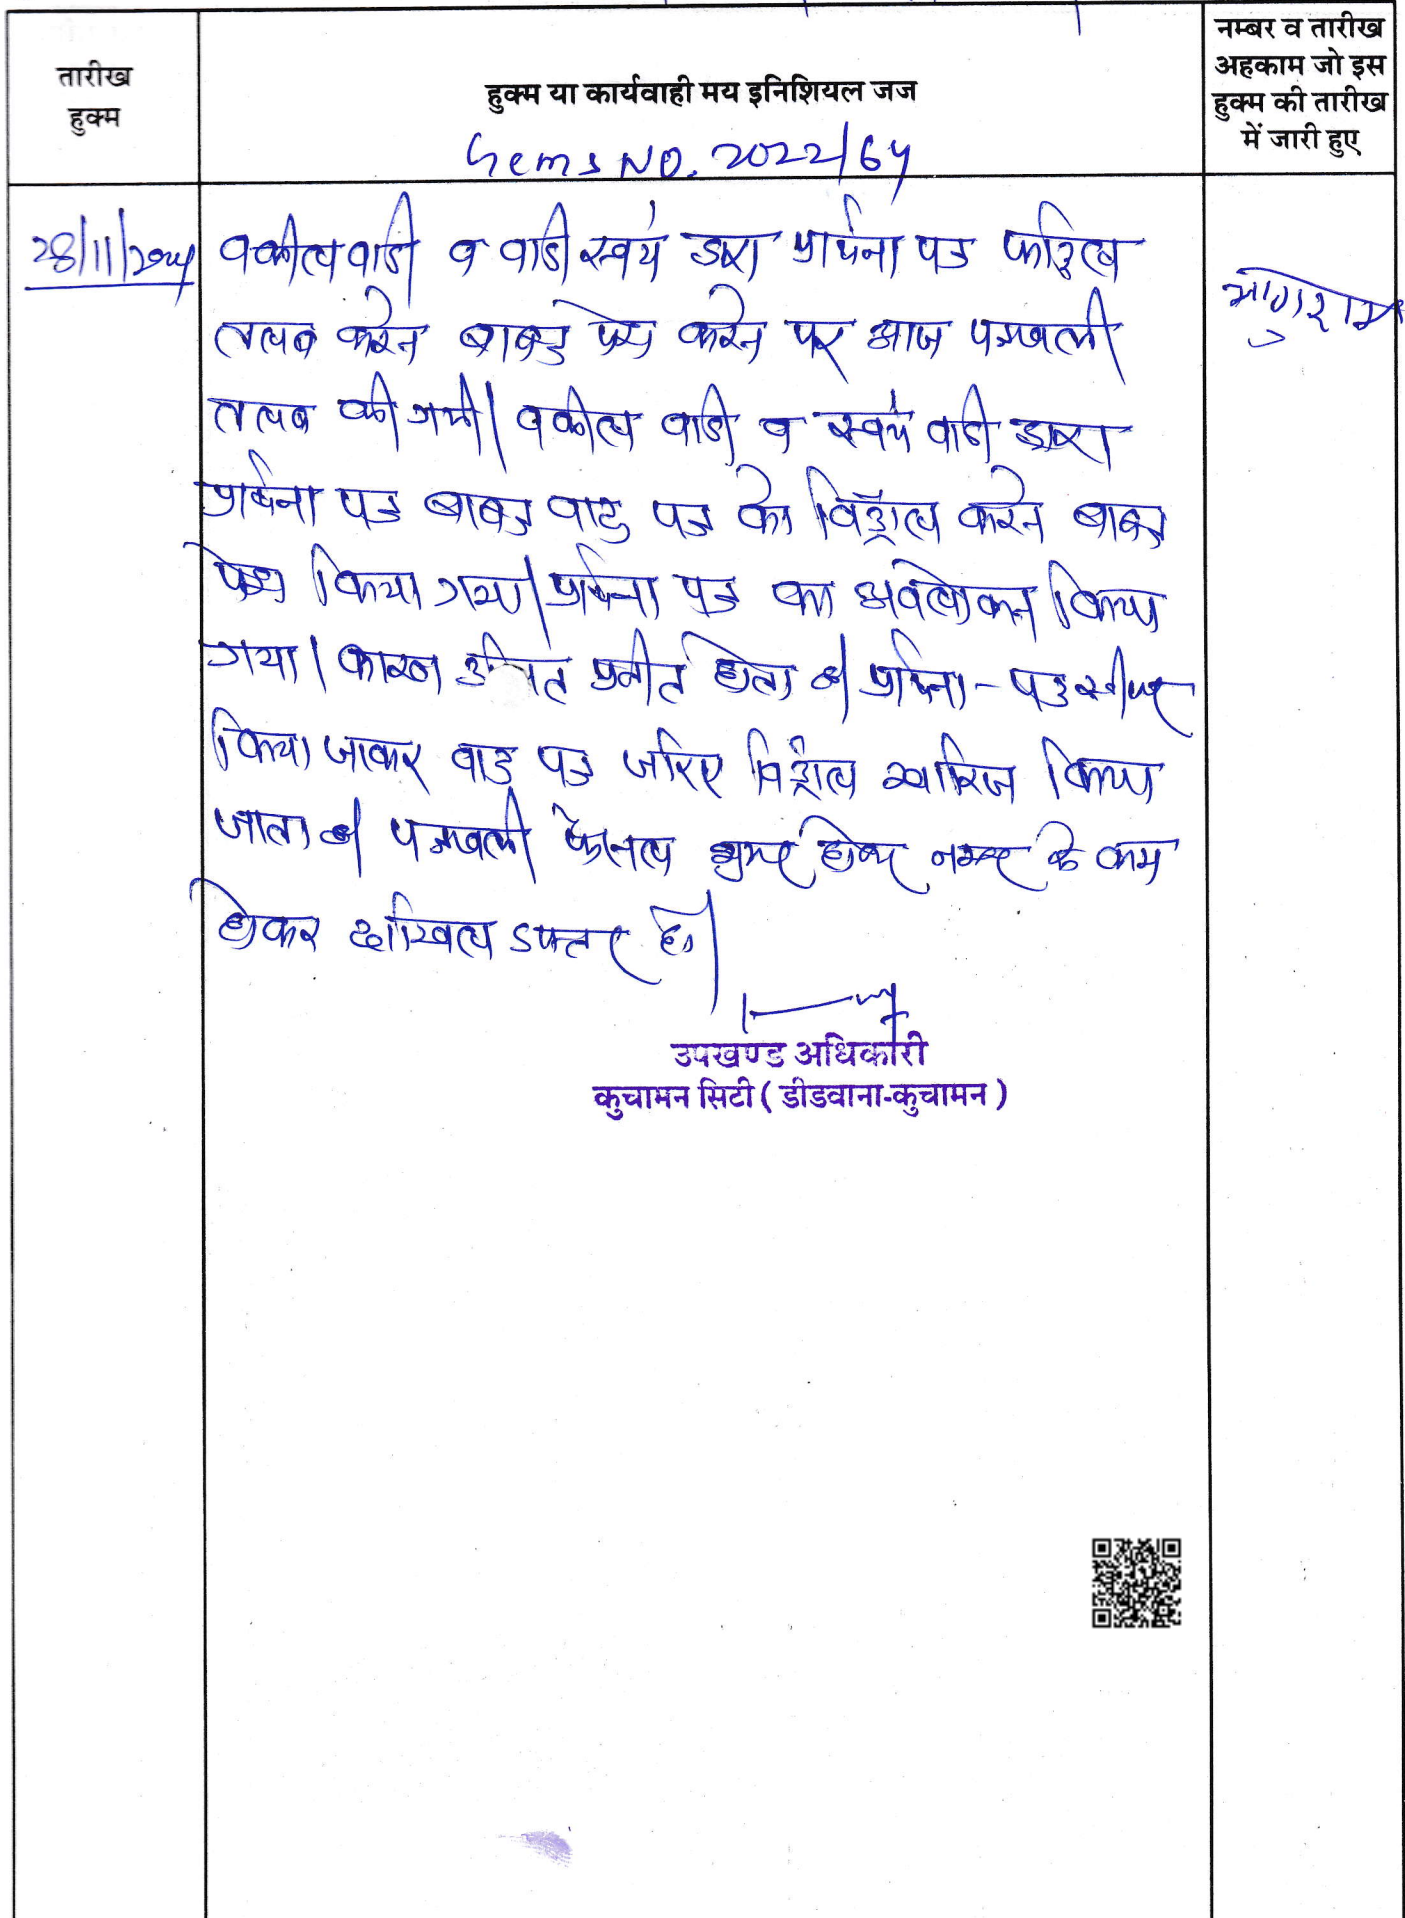 तारीख
हुक्म
हुक्म या कार्यवाही मय इनिशियल जज
नम्बर व तारीख
अहकाम जो इस
हुक्म की तारीख
में जारी हुए
Gcms NO. 2022/64
28/11/2024
वकील वादी व वादी स्वयं द्वारा प्रार्थना पत्र फाईल
तलब करने बाबत पेश करने पर आज पत्रावली
तलब की गयी। वकील वादी व स्वयं वादी द्वारा
प्रार्थना पत्र बाबत वाद पत्र को विड्रॉल करने बाबत
पेश किया गया। प्रार्थना पत्र का अवलोकन किया
गया। कारण उचित प्रतीत होता है। प्रार्थना-पत्र स्वीकार
किया जाकर वाद पत्र जरिए विड्रॉल खारिज किया
जाता है। पत्रावली फैसल शुमार होकर नम्बर से कम
होकर दाखिल दफ्तर हो।
उपखण्ड अधिकारी
कुचामन सिटी ( डीडवाना-कुचामन )